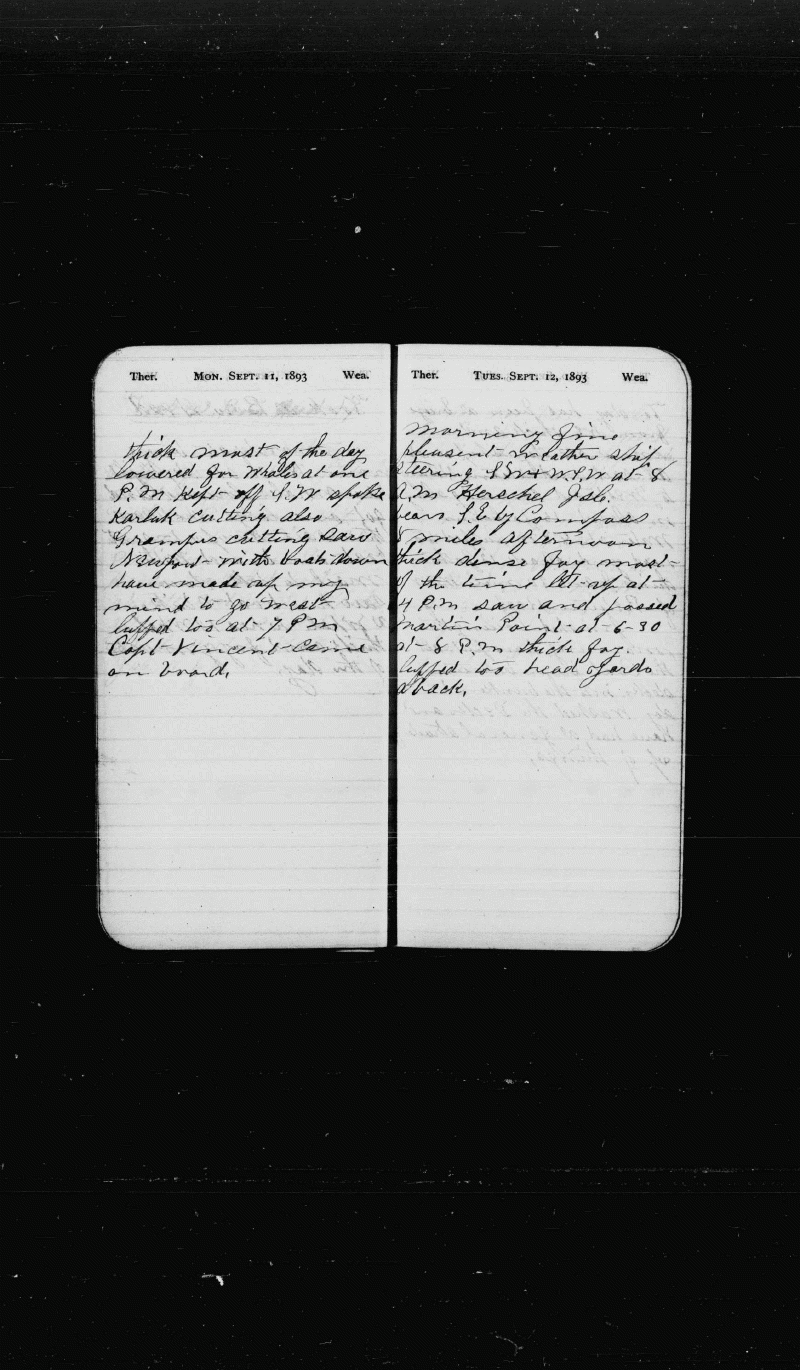 Ther. MON. SEPT. 11, 1893 Wea.
thick most of the day
lowered for Whales at one
P.M Kept off S.W spoke
Karluk cutting also
Grampus cutting saw
Newport with boats down
have made up my
mind to go west
luffed too at 7 PM
Capt Vincent came
on board.
Ther. TUES. SEPT. 12, 1893 Wea.
Morning fine
pleasent weather ship
steering S.W & W.S.W at 8
A.M Herschel Isle.
bears S.E by Compass
8 miles afternoon
thick dense fog most
of the time let up at
4 P.M saw and passed
Martin Point at 6-30
at 8 P.M thick fog
luffed too head yards
aback.